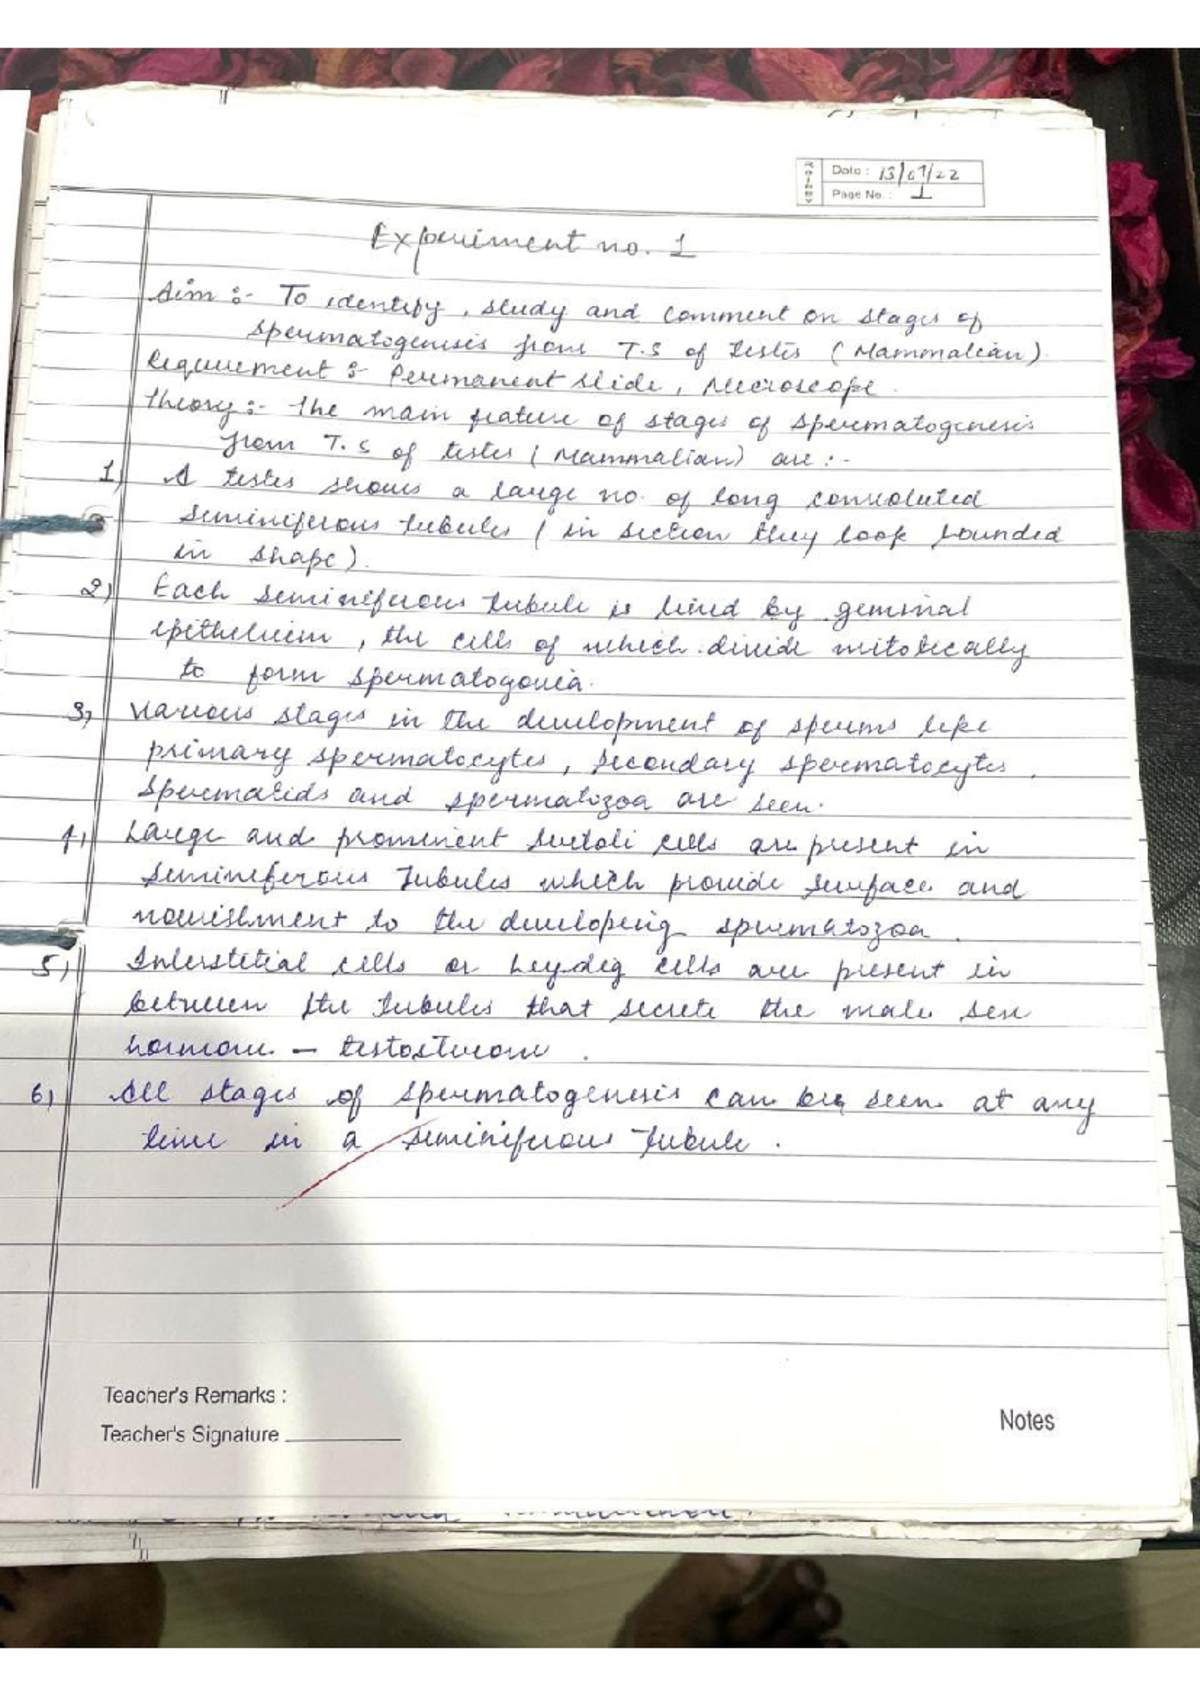 Rainbow
Date : 13/07/22
Page No. : 1
Experiment no. 1
Aim :- To identify, study and comment on stages of
spermatogenesis from T.S of testis (Mammalian).
Requirement :- Permanent slide, Microscope.
Theory :- The main feature of stages of spermatogenesis
from T.S of testes (Mammalian) are :-
1) A testes shows a large no. of long convoluted
seminiferous tubules (in section they look rounded
in shape).
2) Each seminiferous tubule is lined by germinal
epithelium, the cells of which divide mitotically
to form spermatogonia.
3) Various stages in the development of sperms like
primary spermatocytes, secondary spermatocytes,
spermatids and spermatozoa are seen.
4) Large and prominent sertoli cells are present in
seminiferous tubules which provide surface and
nourishment to the developing spermatozoa.
5) Interstitial cells or Leydig cells are present in
between the tubules that secrete the male sex
hormone - testosterone.
6) All stages of spermatogenesis can be seen at any
time in a seminiferous tubule.
Teacher's Remarks :
Teacher's Signature
Notes